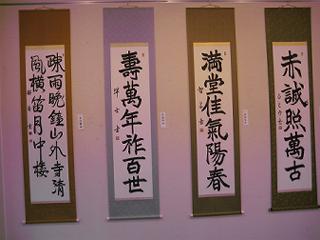 赤誠照萬古
滿堂佳氣陽春
壽萬年祚百世
疎雨晩鐘山外寺清
風橫笛月中樓